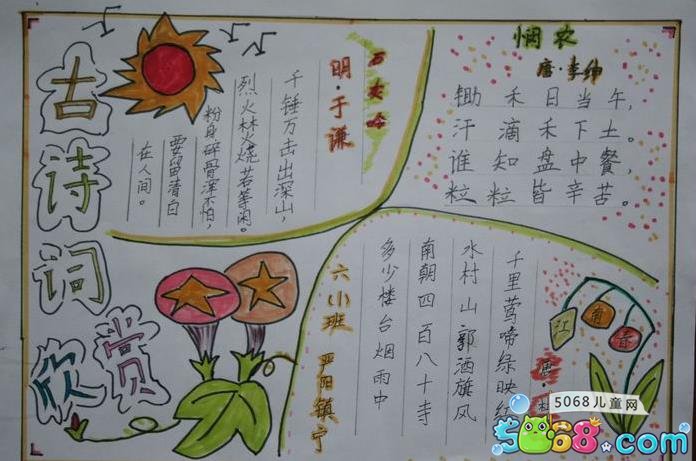 古诗词
欣赏
石灰吟
明·于谦
千锤万击出深山，
烈火焚烧若等闲。
粉身碎骨浑不怕，
要留清白
在人间。
悯农
唐·李绅
锄禾日当午，
汗滴禾下土。
谁知盘中餐，
粒粒皆辛苦。
江南春
唐·杜
千里莺啼绿映红
水村山郭酒旗风
南朝四百八十寺
多少楼台烟雨中
六（小）班 严阳镇宁
5068儿童网
5068.com